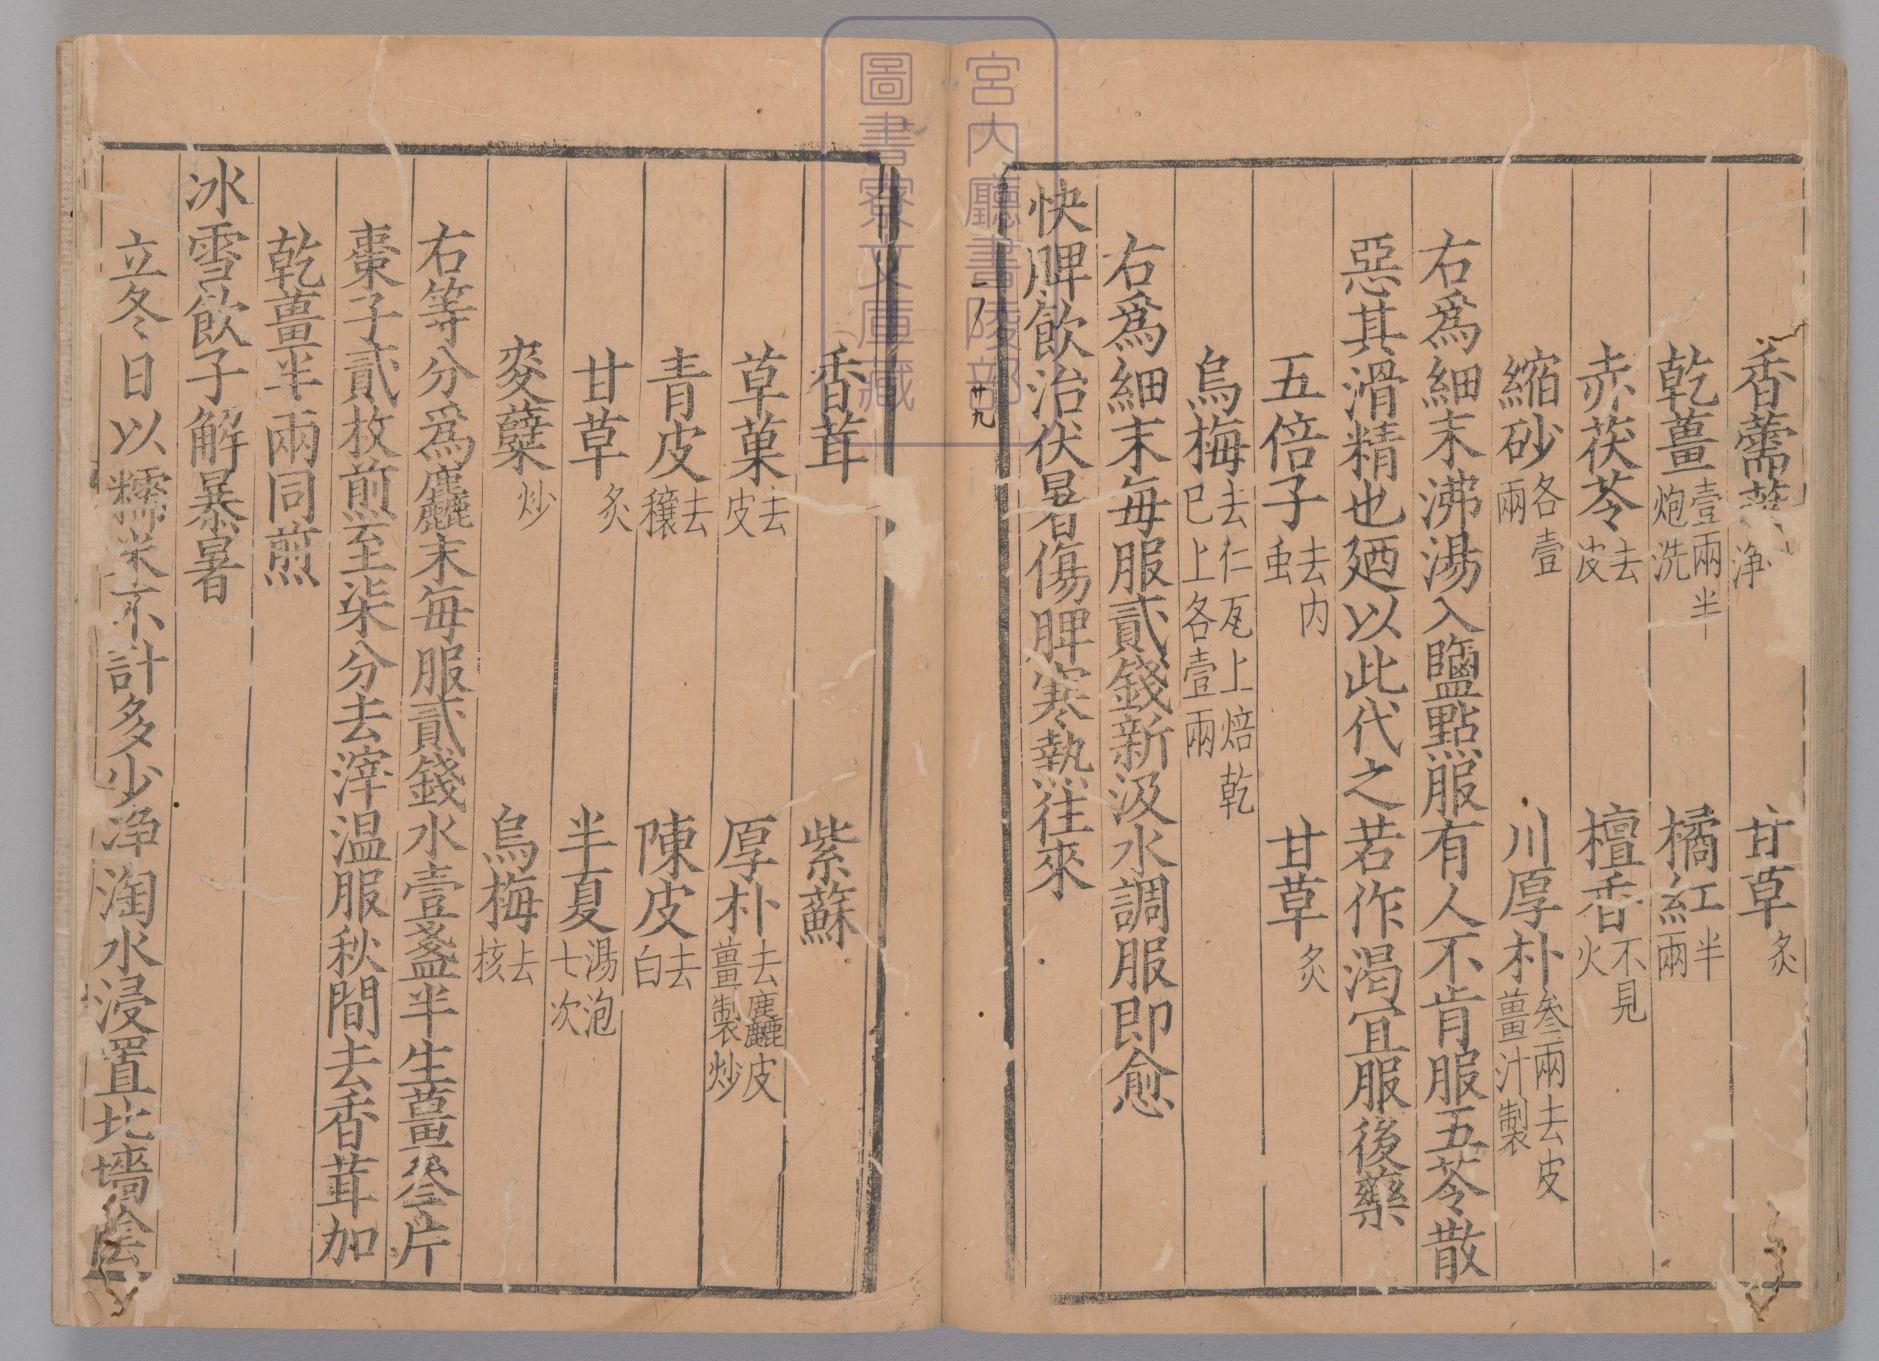 香薷葉净 甘草炙
乾薑壹兩半炮洗 橘紅半兩
赤茯苓去皮 檀香不見火
縮砂各壹兩 川厚朴叁兩去皮薑汁製
右爲細末沸湯入鹽點服有人不肯服五苓散
惡其滑精也廼以此代之若作渴宜服後藥
五倍子去内虫 甘草炙
烏梅去仁瓦上焙乾巳上各壹兩
右爲細末每服貳錢新汲水調服即愈
快脾飲治伏暑傷脾寒熱往來
廿九
香茸 紫蘇
草菓去皮 厚朴去麤皮薑製炒
青皮去穰 陳皮去白
甘草炙 半夏湯泡七次
麥蘖炒 烏梅去核
右等分爲麤末每服貳錢水壹盞半生薑叁片
棗子貳枚煎至柒分去滓温服秋間去香茸加
乾薑半兩同煎
冰雪飲子解暴暑
立冬日以糯米不計多少净淘水浸置北墻陰
宮内廳書陵部
圖書寮文庫藏